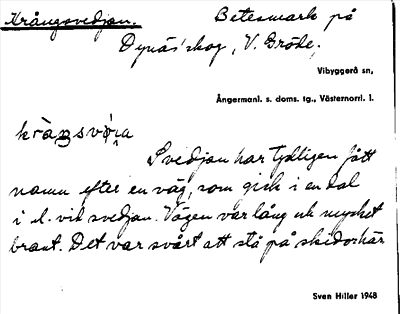 Krångsvedjan. Betesmark på
Dynäs' skog, V. Gröde.
Vibyggerå sn,
Ångermanl. s. doms. tg., Västernorrl. l.
Svedjan har tydligen fått
namn efter en väg, som gick i en dal
i el. vid svedjan. Vägen var lång och mycket
brant. Det var svårt att stå på skidor här
Sven Hiller 1948